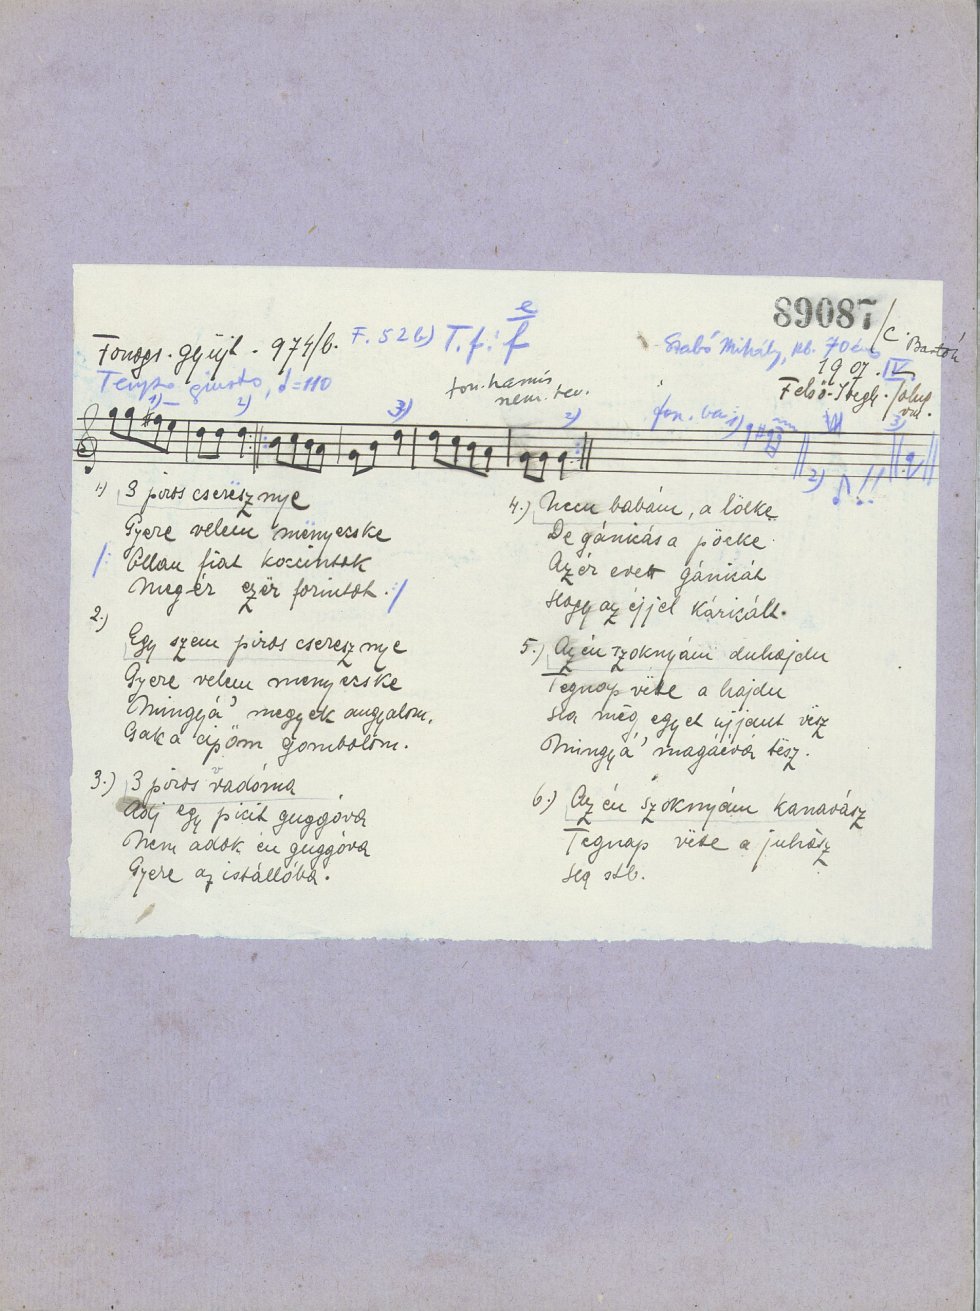 89087
Fonogr. gyűjt. 974/b. F. 52 b) T.f: e f Szabó Mihály, kb. 70 éves / C Bartók
1907. IV
Tempo giusto, ♩=110 fon. hamis nem. rev. Felső-Iregh. /
1) 2) 3) 2) fon. 1) 2) 3)
1.) 3 piros cserësznye
Gyere velem mënyecske
/: Ollan fiat koccintok
Megér ezër forintot. :/
2.)
Egy szem piros cseresznye
Gyere velem menyecske
Mingyá' megyek angyalom,
Gaka cipőm gombolom.
3.) 3 piros vadóma
Adj egy picit guggóva
Nem adok én guggóva
Gyere az istállóba.
4.) Nem babám, a lölke
De gánicás a pöcke
Azér evett gánicát
Hogy az éjjel káricált.
5.) Az én szoknyám duhajdu
Tegnap vëtte a hajdu
Ha még egyet ujjant vësz
Mingyá' magáévá tësz.
6.) Az én szoknyám kanavász
Tegnap vëtte a juhász
Ha stb.